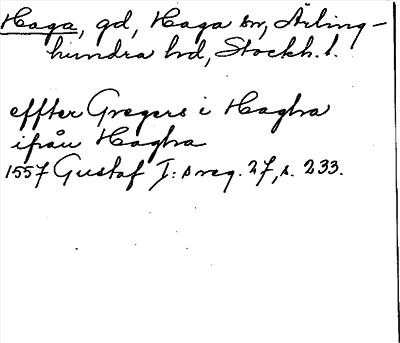 Haga, gd, Haga sn, Ärling-
hundra hd, Stockh. l.
effter Gregers i Hagha
ifrån Hagha
1557 Gustaf I:s reg. 27, s. 233.